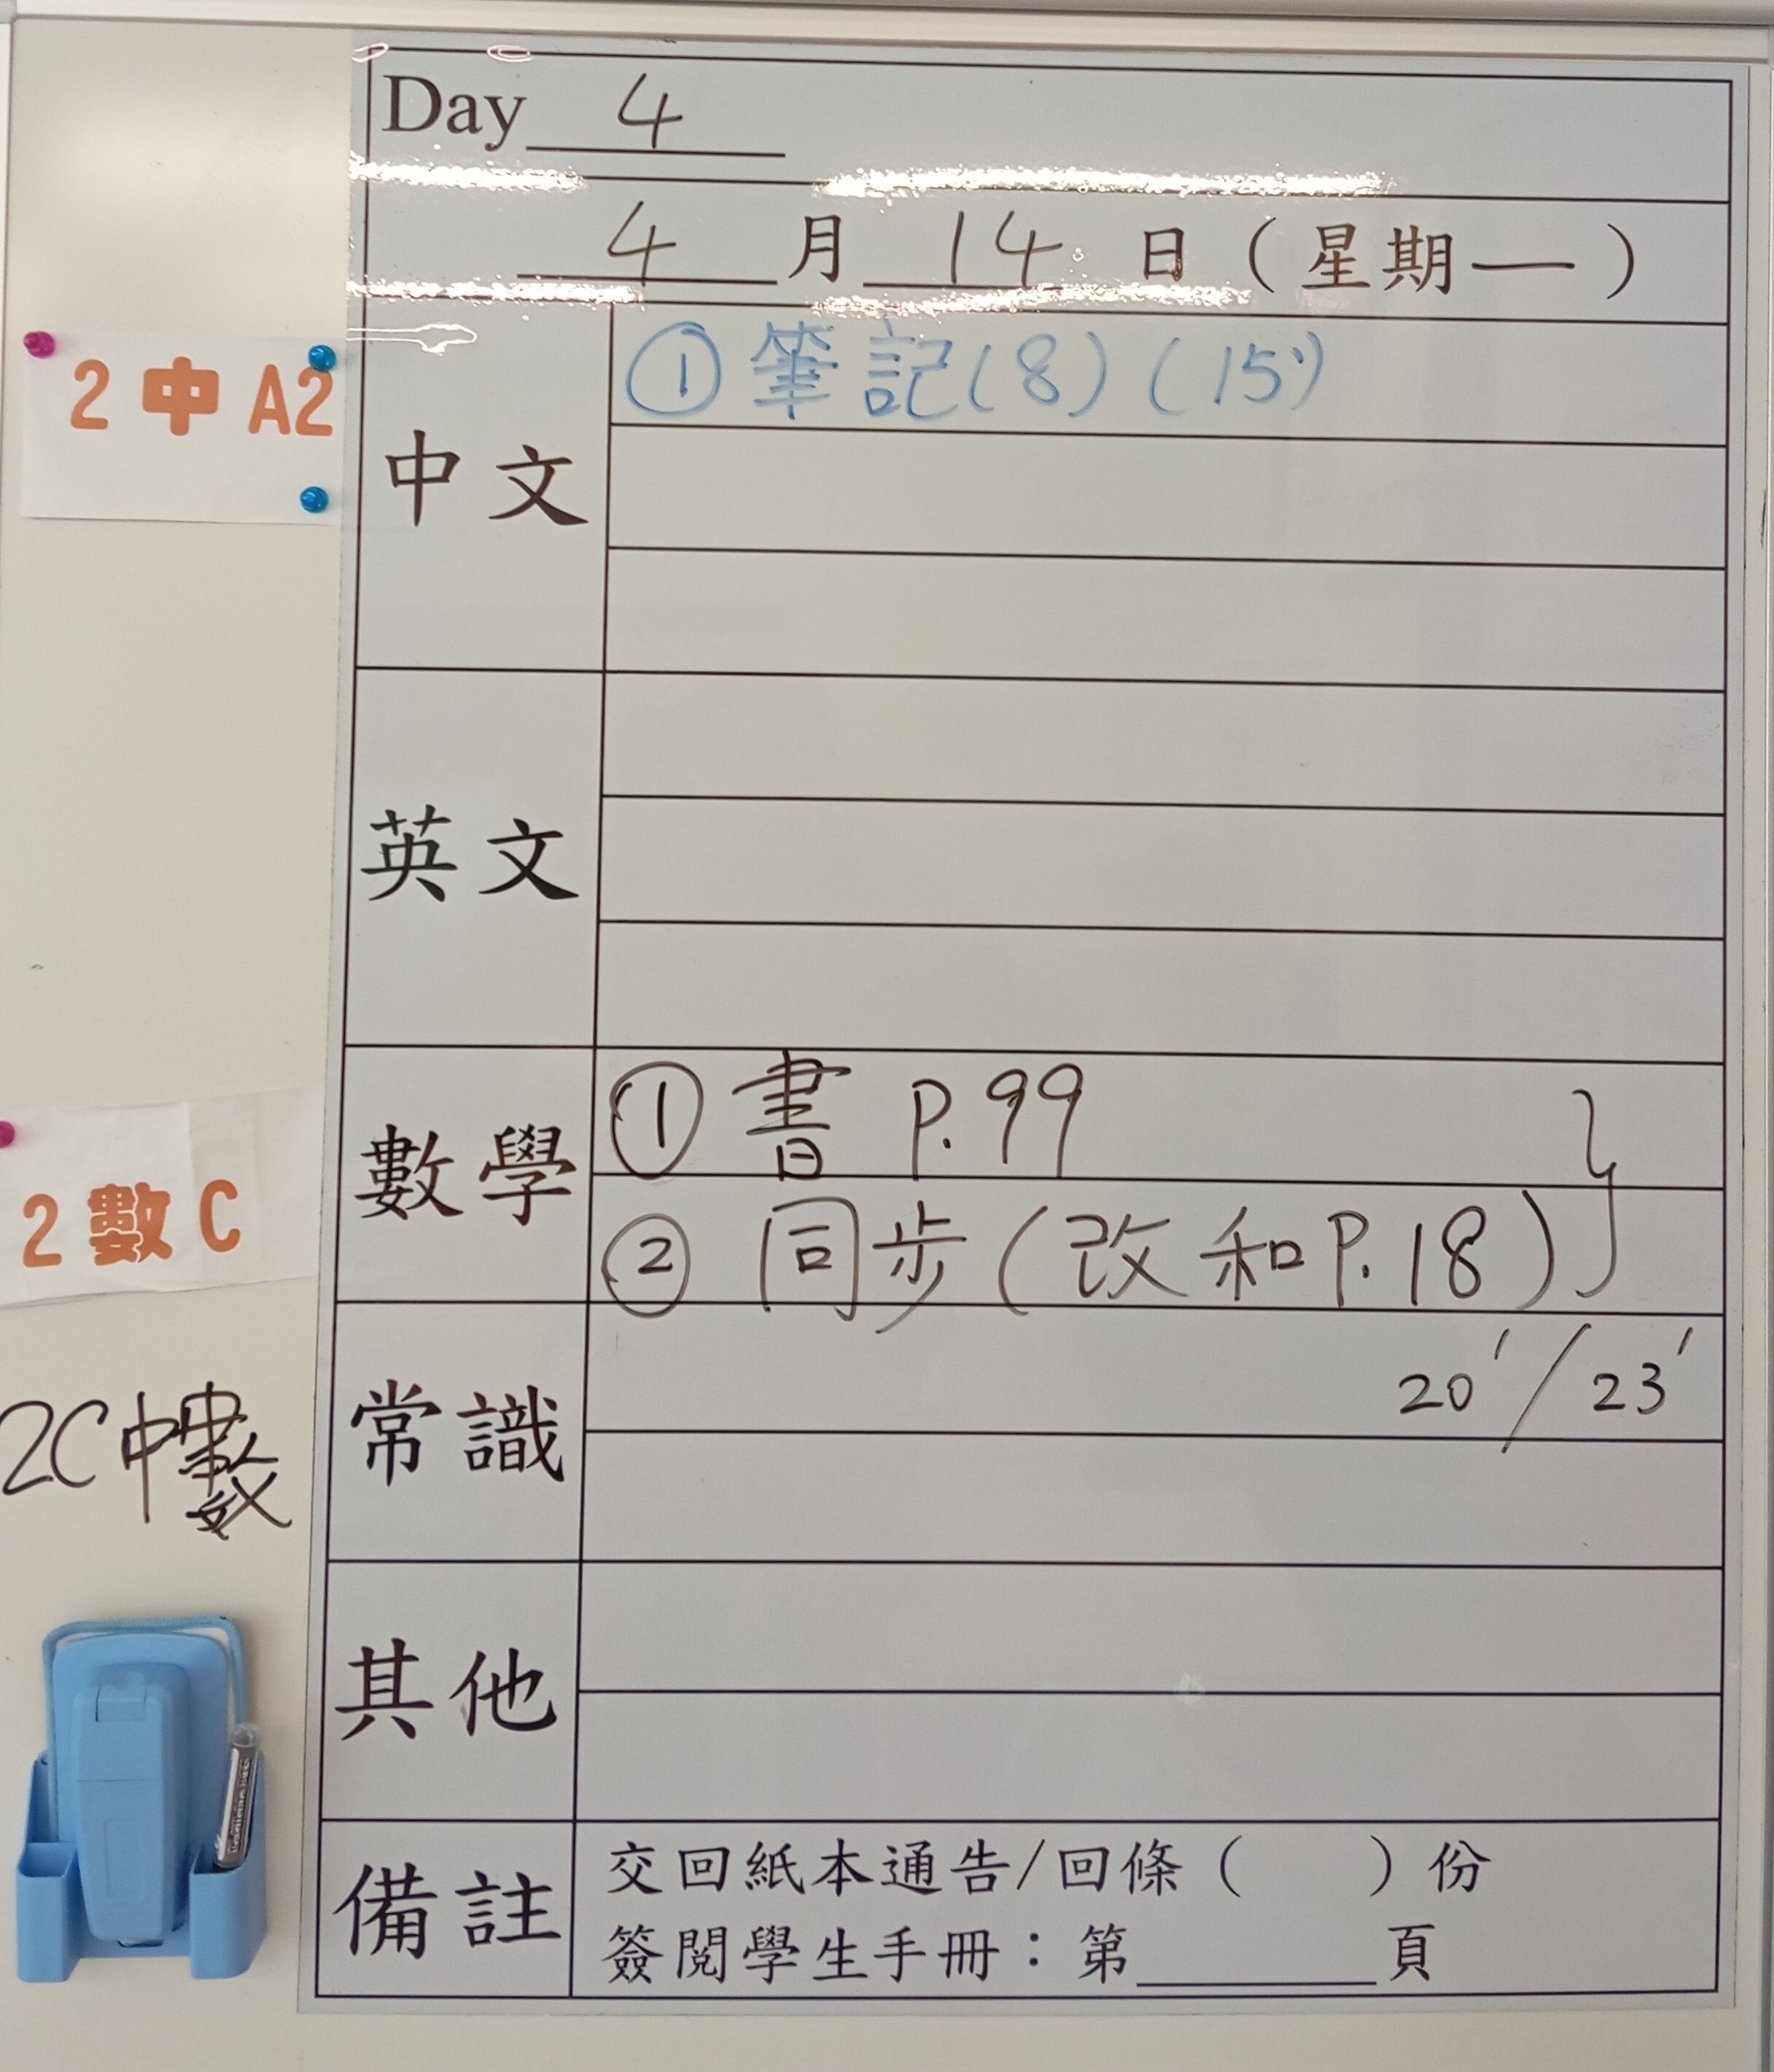 Day 4
4 月 14 日 ( 星期一 )
2 中 A2
中文
① 筆記(8) (15')
英文
2 數 C
數學
① 書 P.99
② 同步 (改和P.18)
2C中數
常識
20' / 23'
其他
備註
交回紙本通告/回條 ( ) 份
簽閱學生手冊：第______頁